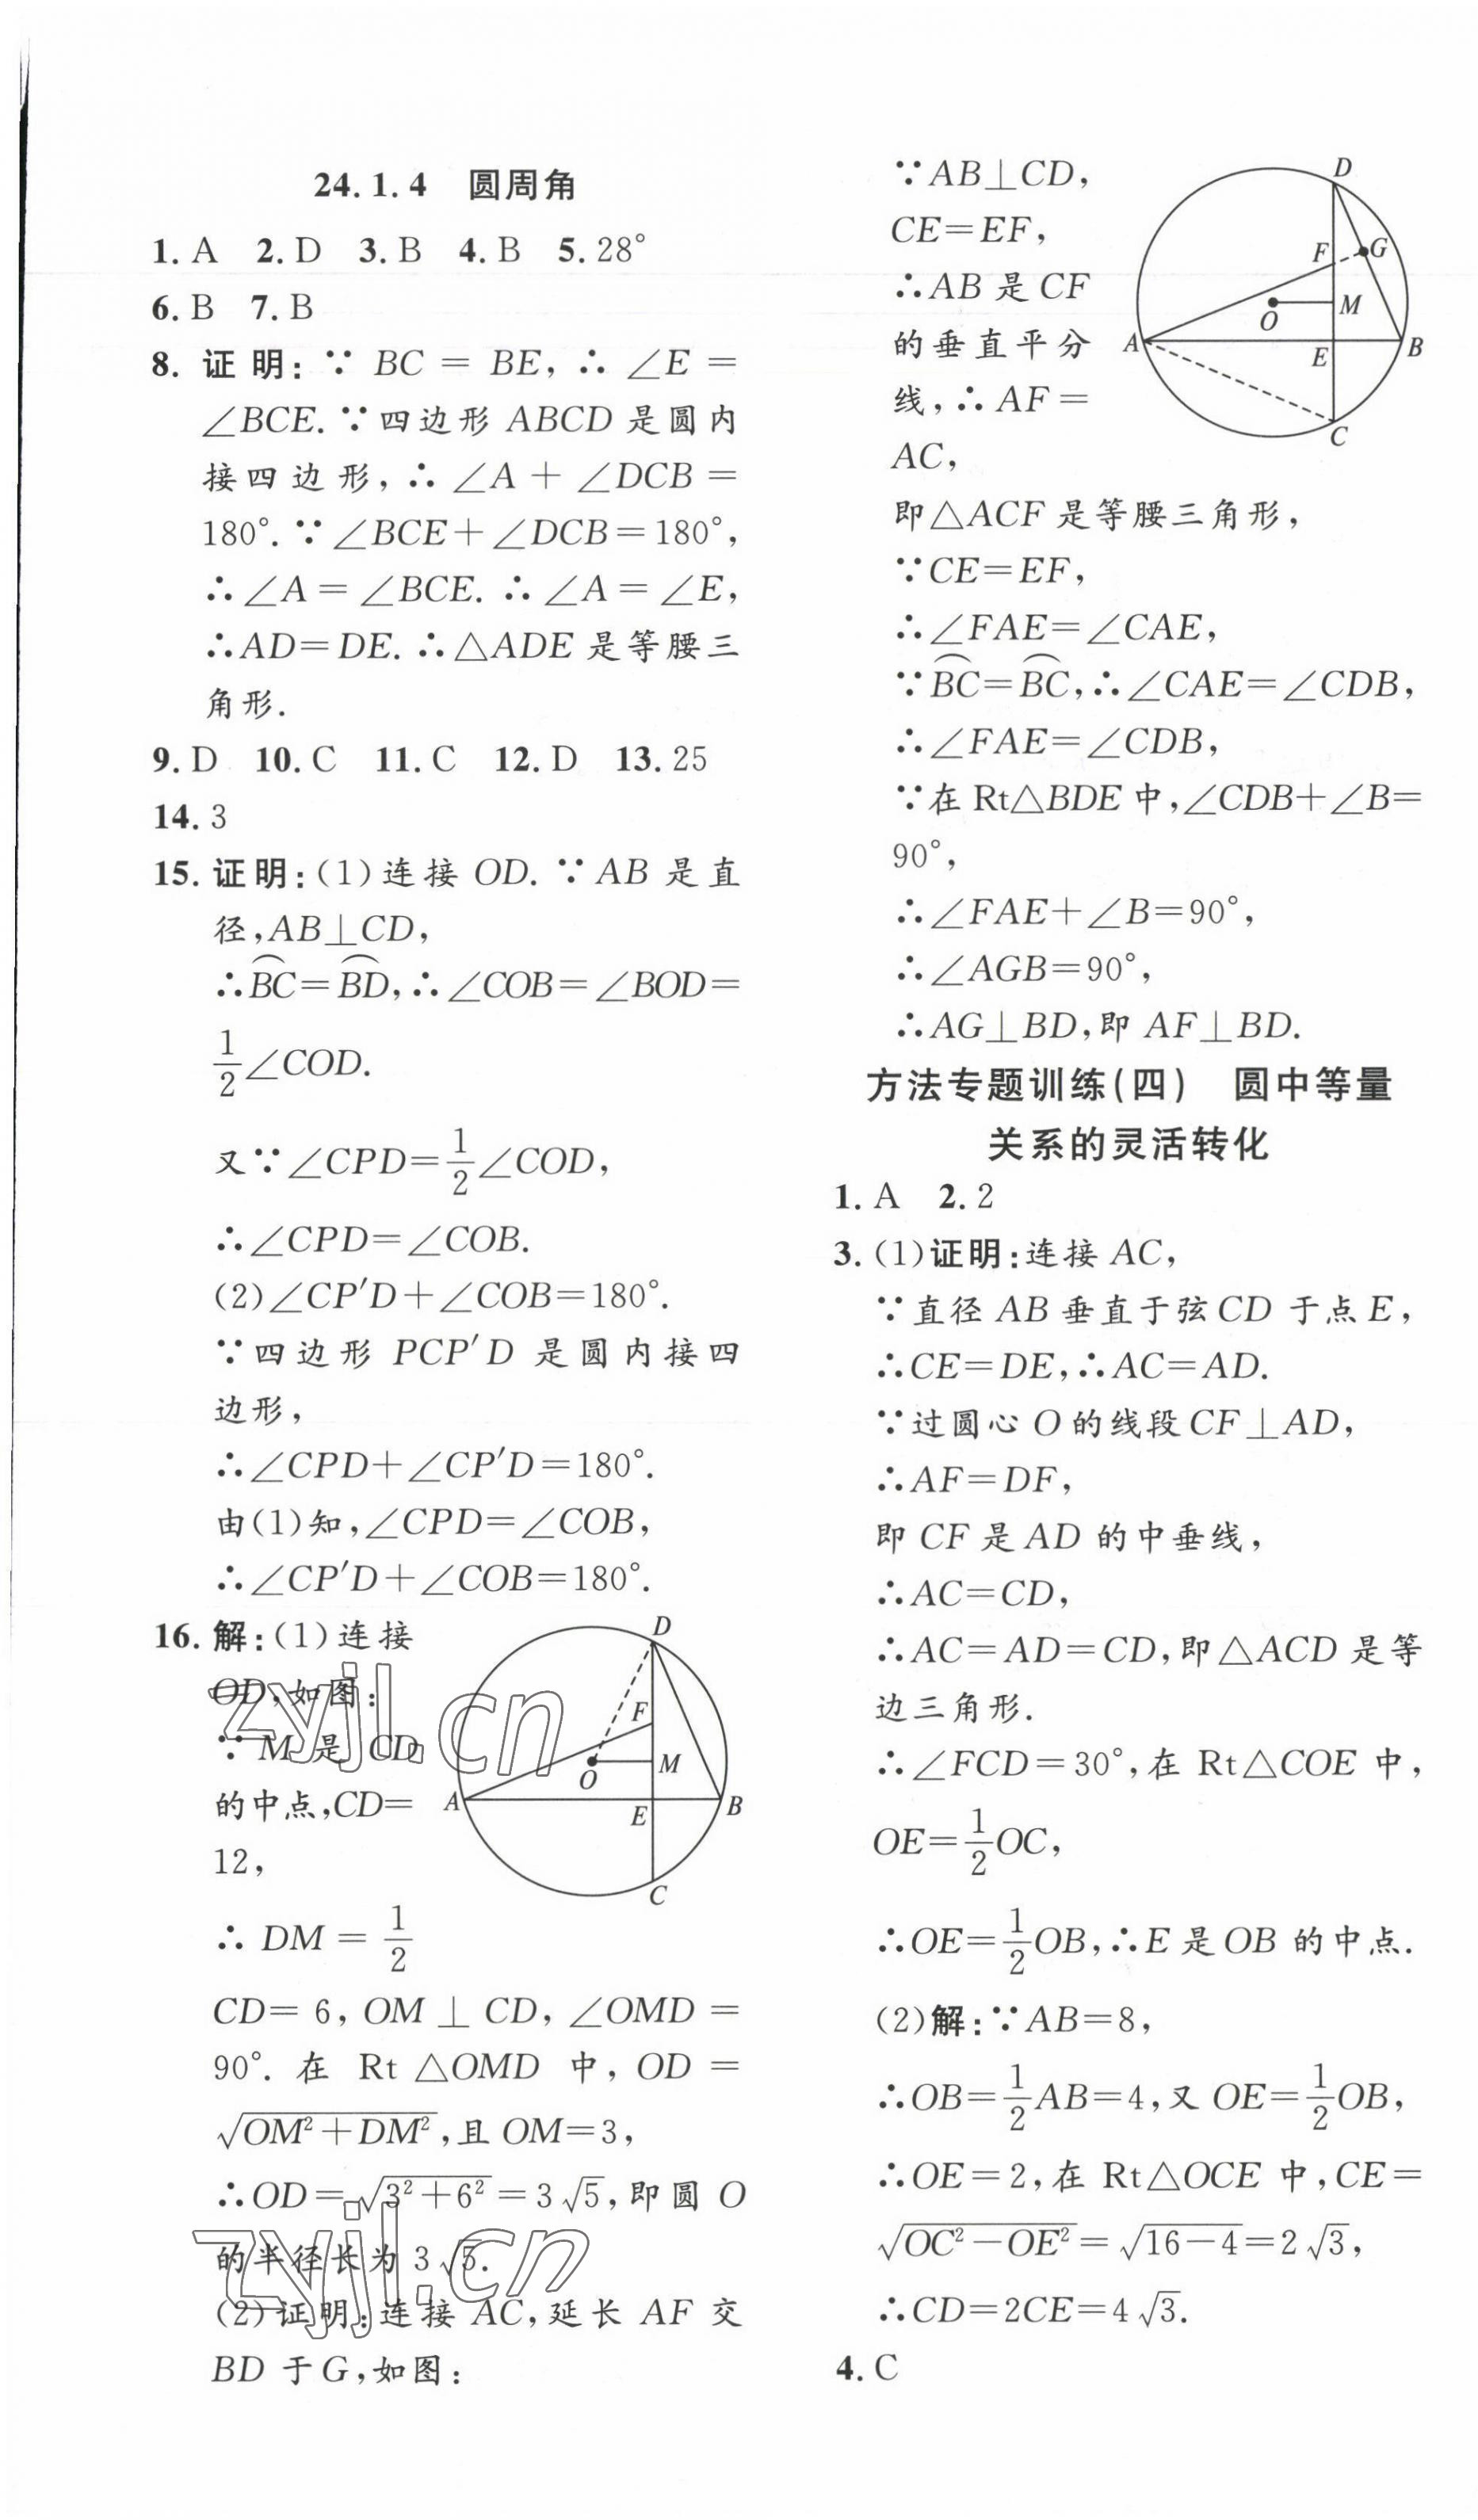 24.1.4 圆周角
1. A 2. D 3. B 4. B 5. 28°
6. B 7. B
8. 证明:∵ BC = BE, ∴ ∠E =
∠BCE. ∵四边形 ABCD 是圆内
接四边形, ∴ ∠A + ∠DCB =
180°. ∵∠BCE+∠DCB=180°,
∴∠A=∠BCE. ∴∠A=∠E,
∴AD=DE. ∴△ADE 是等腰三
角形.
9. D 10. C 11. C 12. D 13. 25
14. 3
15. 证明:(1)连接 OD. ∵AB 是直
径,AB⊥CD,
∴⌒BC=⌒BD,∴∠COB=∠BOD=
1/2∠COD.
又∵∠CPD=1/2∠COD,
∴∠CPD=∠COB.
(2)∠CP′D+∠COB=180°.
∵四边形 PCP′D 是圆内接四
边形,
∴∠CPD+∠CP′D=180°.
由(1)知,∠CPD=∠COB,
∴∠CP′D+∠COB=180°.
16. 解:(1)连接
OD,如图:
∵M 是 CD
的中点,CD=
12,
∴ DM = 1/2
CD= 6, OM ⊥ CD, ∠OMD =
90°. 在 Rt △OMD 中, OD =
√(OM²+DM²),且 OM=3,
∴OD=√(3²+6²)=3√5,即圆 O
的半径长为 3√5.
(2)证明:连接 AC,延长 AF 交
BD 于 G,如图:
D
F
M
O
A
E
B
C
zyjl.cn
zyjl.cn
∵AB⊥CD,
CE=EF,
∴AB 是 CF
的垂直平分
线,∴AF=
AC,
即△ACF 是等腰三角形,
∵CE=EF,
∴∠FAE=∠CAE,
∵⌒BC=⌒BC,∴∠CAE=∠CDB,
∴∠FAE=∠CDB,
∵在 Rt△BDE 中,∠CDB+∠B=
90°,
∴∠FAE+∠B=90°,
∴∠AGB=90°,
∴AG⊥BD,即 AF⊥BD.
D
F
G
O
M
A
E
B
C
方法专题训练(四) 圆中等量
关系的灵活转化
1. A 2. 2
3. (1)证明:连接 AC,
∵直径 AB 垂直于弦 CD 于点 E,
∴CE=DE,∴AC=AD.
∵过圆心 O 的线段 CF⊥AD,
∴AF=DF,
即 CF 是 AD 的中垂线,
∴AC=CD,
∴AC=AD=CD,即△ACD 是等
边三角形.
∴∠FCD=30°,在 Rt△COE 中,
OE=1/2OC,
∴OE=1/2OB,∴E 是 OB 的中点.
(2)解:∵AB=8,
∴OB=1/2AB=4,又 OE=1/2OB,
∴OE=2,在 Rt△OCE 中,CE=
√(OC²-OE²)=√(16-4)=2√3,
∴CD=2CE=4√3.
4. C